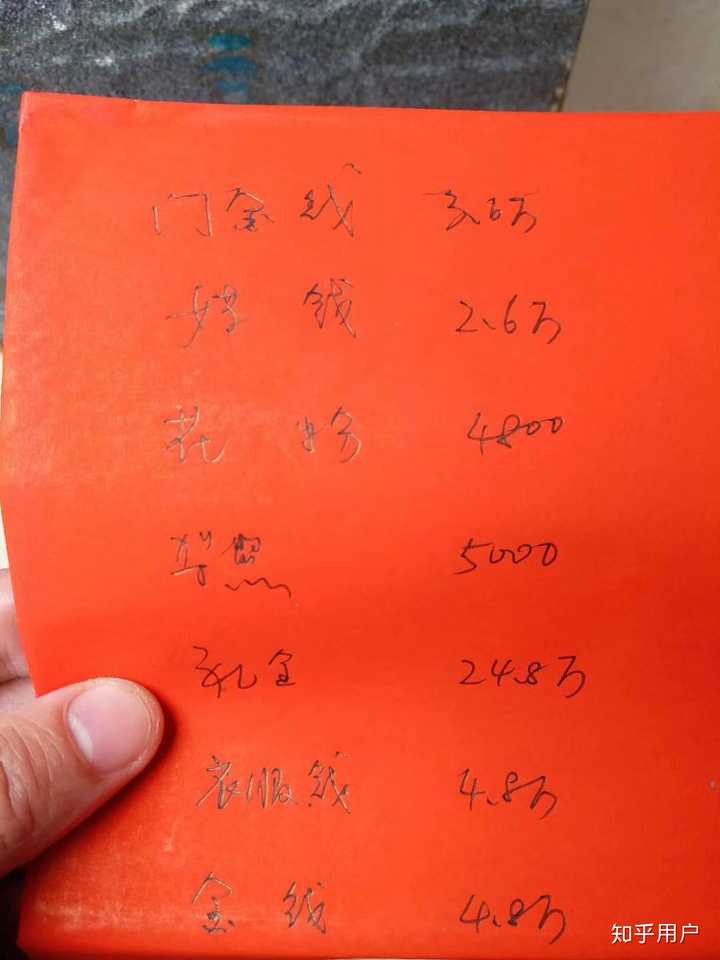 门金钱
钱 2.6万
花粉 4800
照 5000
礼金 24.8万
衣服钱 4.8万
金钱 4.8万
知乎用户